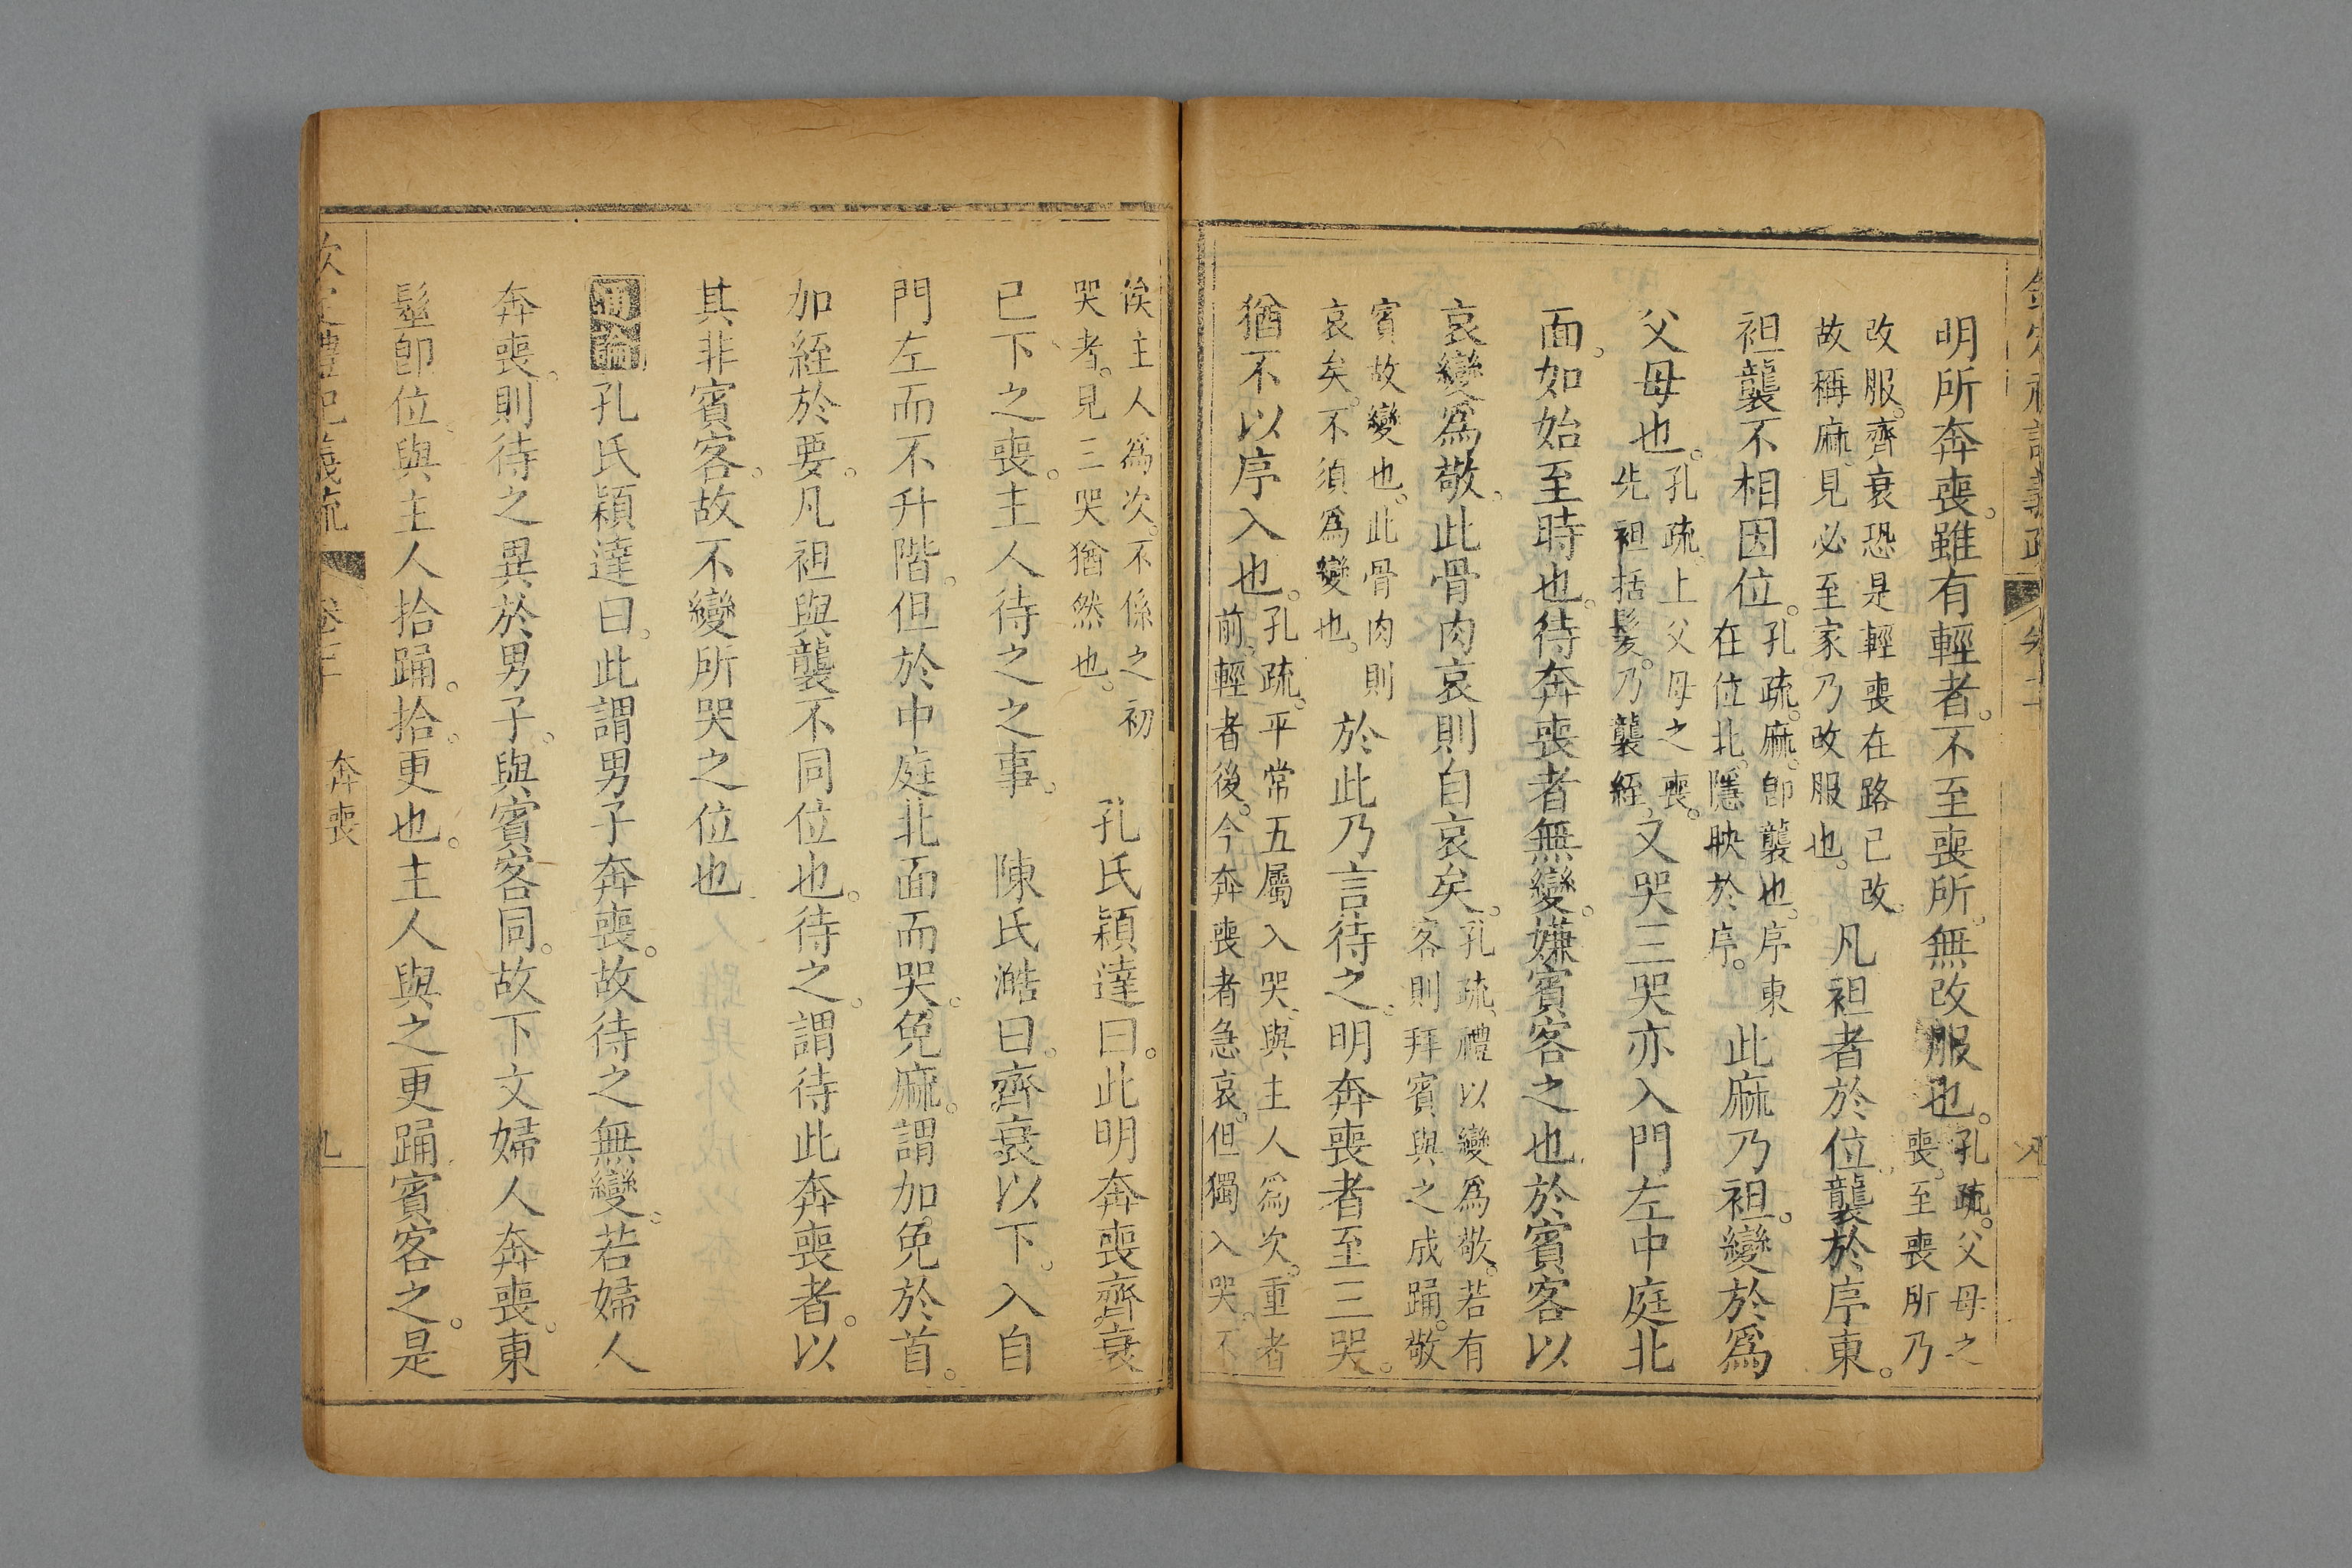 明所奔喪。雖有輕者。不至喪所。無改服也。孔疏。父母之喪。至喪所乃
改服。齊衰恐是輕喪在路已改。故稱麻。見必至家乃改服也。凡袒者於位。襲於序東。
袒襲不相因位。孔疏。麻。卽襲也。序東在位北。隱映於序。此麻乃袒。變於為
父母也。孔疏。上父母之喪。先袒括髪。乃襲絰。又哭三哭亦入門左中庭北
面。如始至時也。待奔喪者無變。嫌賓客之也。於賓客以
哀變為敬。此骨肉哀則自哀矣。孔疏。禮以變為敬。若有客則拜賓與之成踊。敬
賓故變也。此骨肉則哀矣。不須為變也。於此乃言待之。明奔喪者至三哭。
猶不以序入也。孔疏。平常五屬入哭。與主人為次。重者前。輕者後。今奔喪者急哀。但獨入哭。不
俟主人為次。不係之初哭者。見三哭猶然也。孔氏穎達曰。此明奔喪齊衰
已下之喪。主人待之之事。 陳氏澔曰。齊衰以下。入自
門左而不升階。但於中庭北面而哭。免麻。謂加免於首。
加絰於要。凡袒與襲不同位也。待之。謂待此奔喪者。以
其非賓客。故不變所哭之位也
通論孔氏穎達曰。此謂男子奔喪。故待之無變。若婦人
奔喪。則待之異於男子。與賓客同。故下文婦人奔喪。東
髽卽位。與主人拾踊。拾。更也。主人與之更踊。賓客之。是
奔喪
九